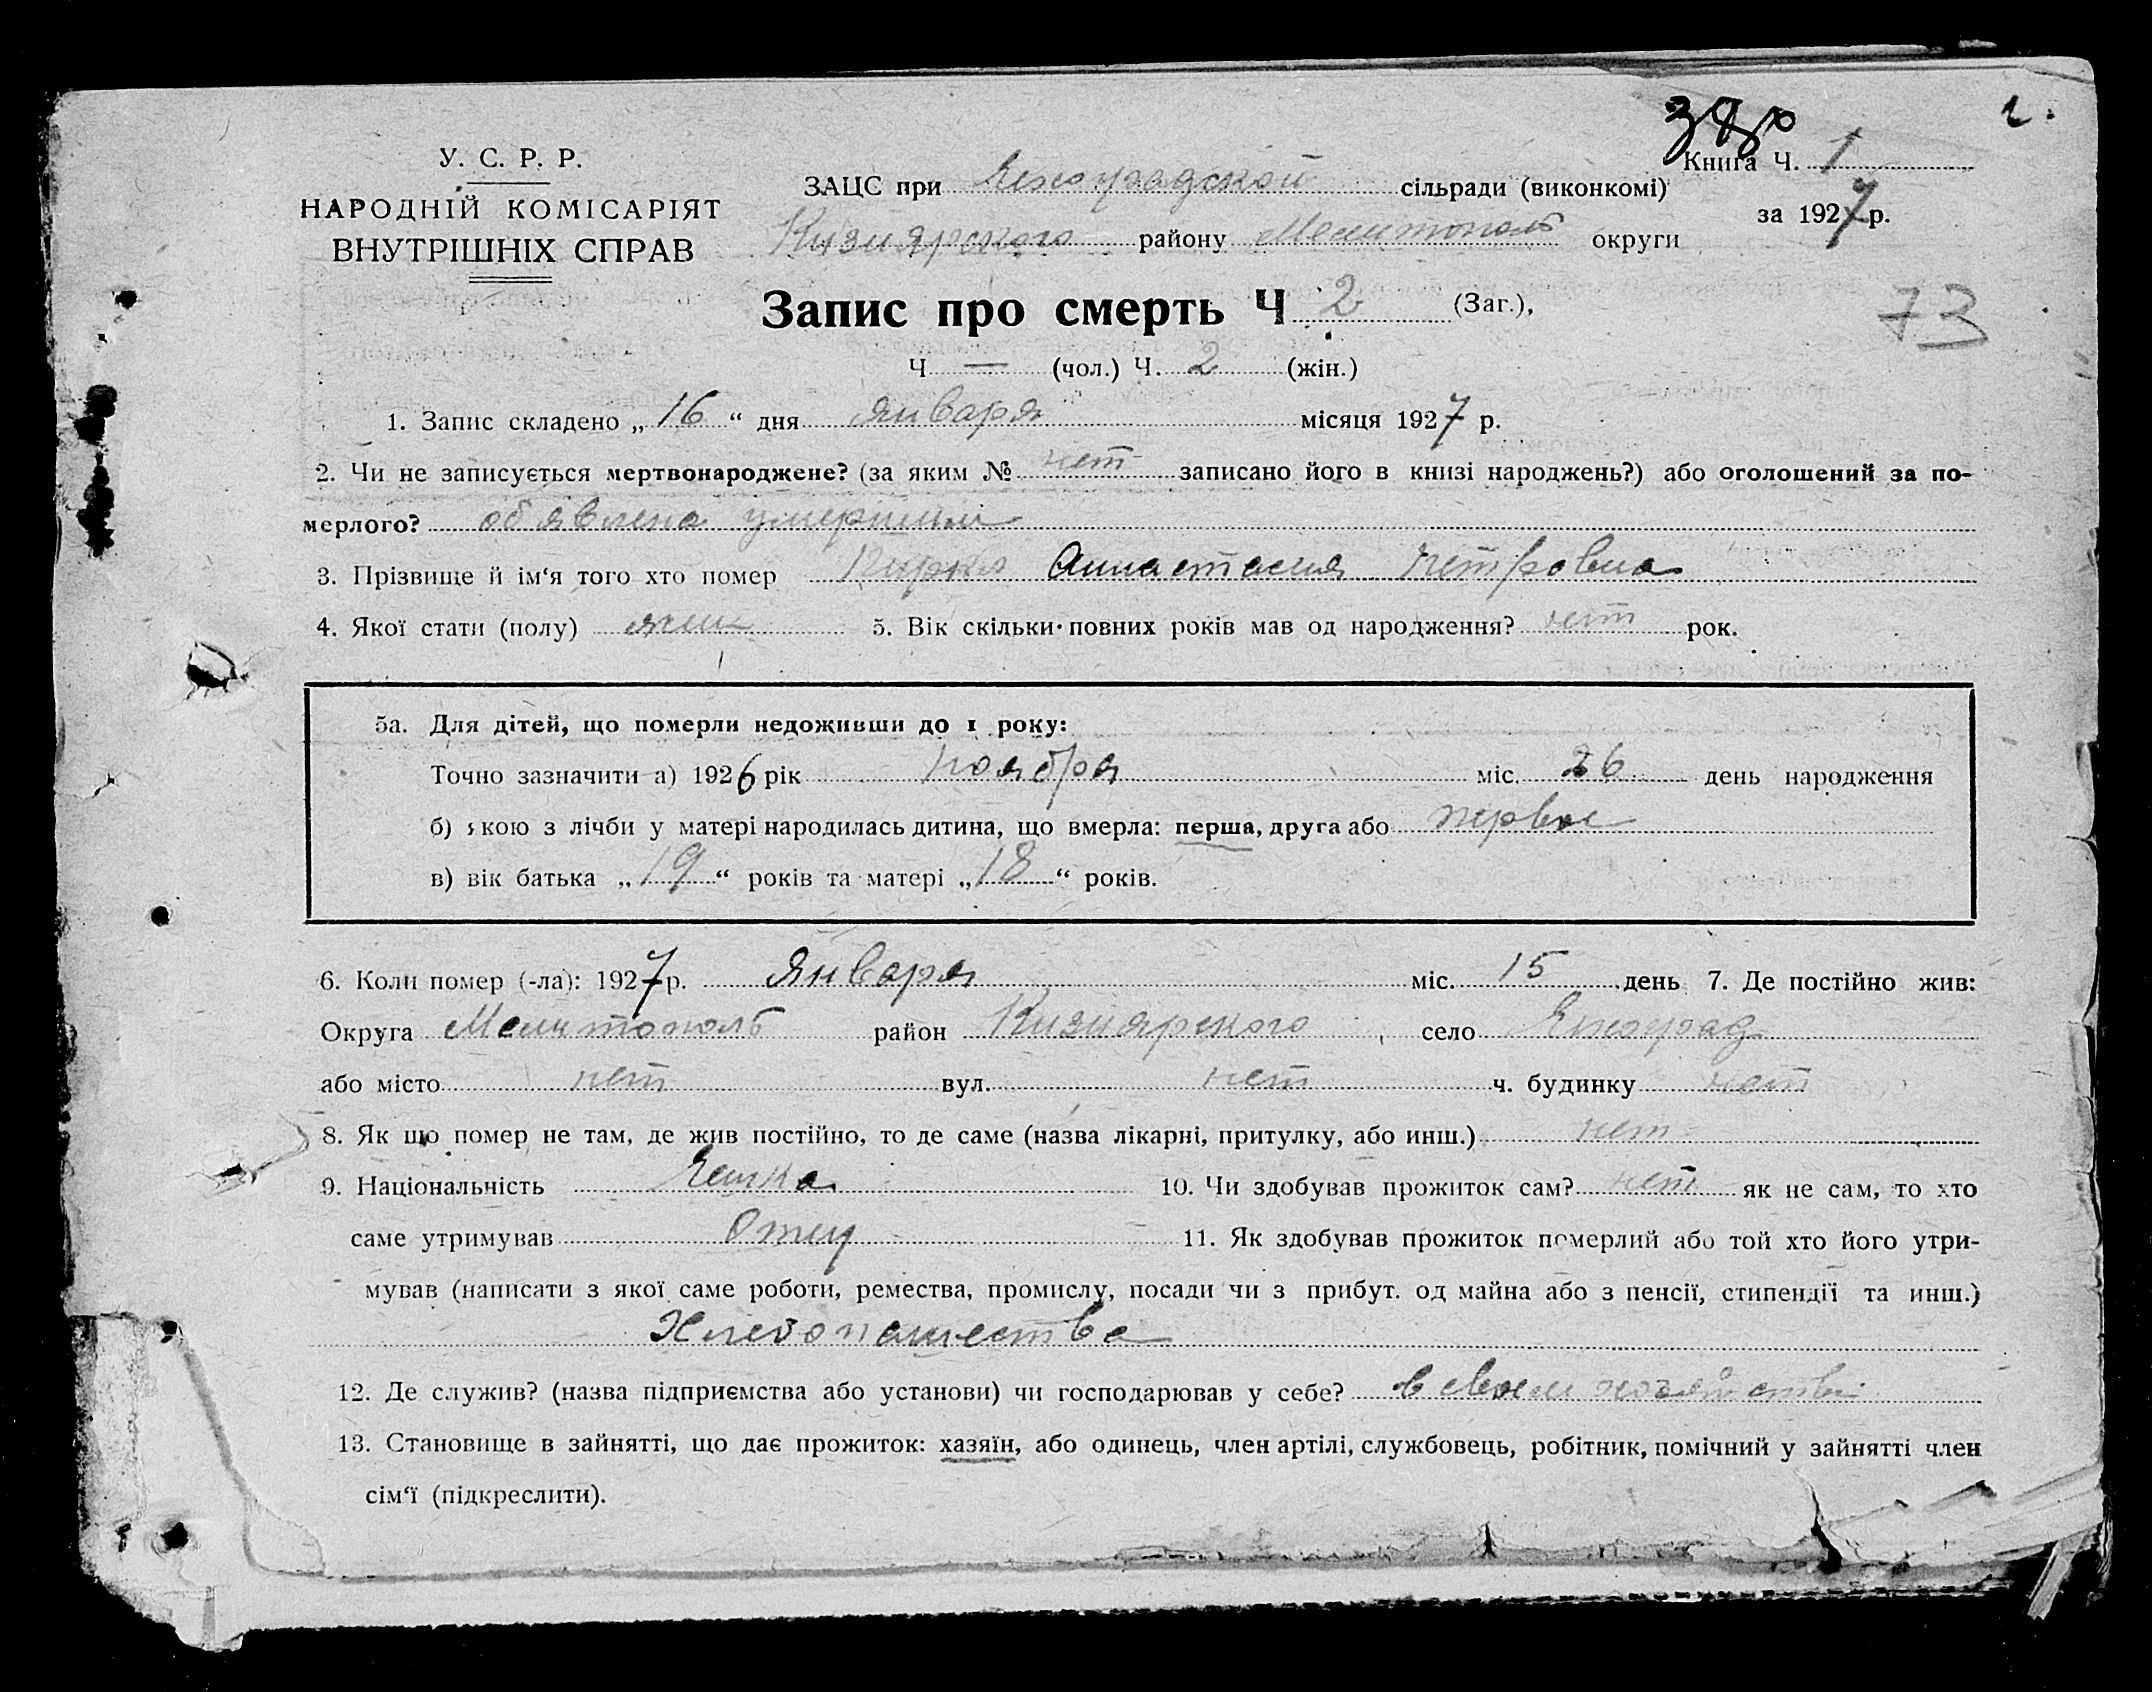 У. С. Р. Р.
НАРОДНІЙ КОМІСАРІЯТ
ВНУТРІШНІХ СПРАВ
Книга Ч. 1
за 1927 р.
ЗАЦС при сільради (виконкомі)
Кизиярского району Мелитополь округи
73
Запис про смерть Ч 2 (Заг.),
Ч — (чол.) Ч. 2 (жін.)
1. Запис складено „16“ дня января місяця 1927 р.
2. Чи не записується мертвонароджене? (за яким № нет записано його в книзі народжень?) або оголошений за по-
мерлого? обявлена умершим
3. Прізвище й ім‘я того хто помер Анастасия Петровна
4. Якої стати (полу) жен 5. Вік скільки повних років мав од народження? нет рок.
5а. Для дітей, що померли недоживши до 1 року:
Точно зазначити а) 1926 рік ноября міс. 26 день народження
б) якою з лічби у матері народилась дитина, що вмерла: перша, друга або первое
в) вік батька „19“ років та матері „18“ років.
6. Коли помер (-ла): 1927 р. Января міс. 15 день 7. Де постійно жив:
Округа Мелитополь район Кизиярского село
або місто нет вул. нет ч. будинку нет
8. Як що помер не там, де жив постійно, то де саме (назва лікарні, притулку, або инш.) нет
9. Національність 10. Чи здобував прожиток сам? нет як не сам, то хто
саме утримував Отец 11. Як здобував прожиток померлий або той хто його утри-
мував (написати з якої саме роботи, ремества, промислу, посади чи з прибут. од майна або з пенсії, стипендії та инш.)
Хлебопашества
12. Де служив? (назва підприємства або установи) чи господарював у себе? в своем хозяйстве
13. Становище в зайнятті, що дає прожиток: хазяїн, або одинець, член артілі, службовець, робітник, помічний у зайнятті член
сім‘ї (підкреслити).